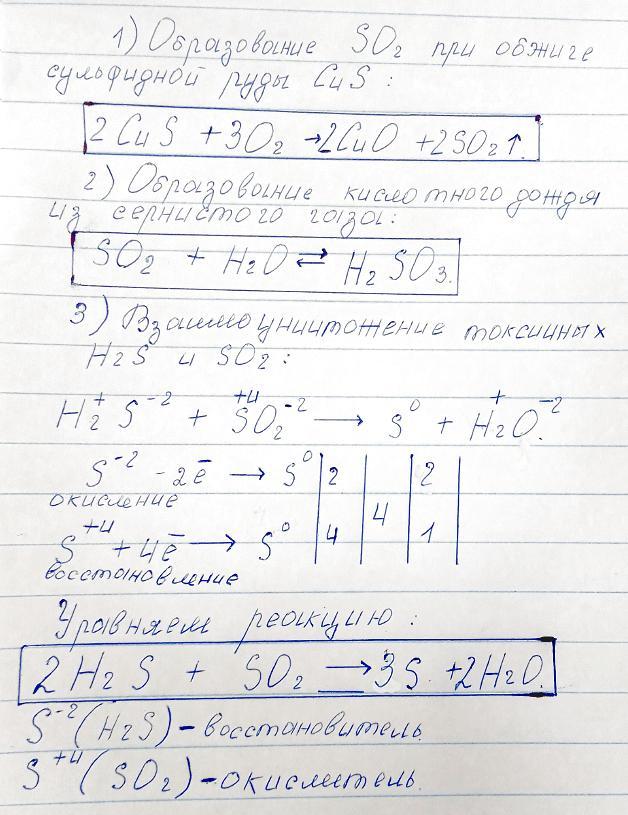 1) Образование SO₂ при обжиге
сульфидной руды CuS :
2CuS + 3O₂ → 2CuO + 2SO₂↑.
2) Образование кислотного дождя
из сернистого газа:
SO₂ + H₂O ⇄ H₂SO₃.
3) Взаимоуничтожение токсичных
H₂S и SO₂ :
H₂⁺S⁻² + S⁺⁴O₂⁻² → S⁰ + H₂⁺O⁻².
S⁻² - 2ē → S⁰ | 2 | | 2 |
окисление
4
S⁺⁴ + 4ē → S⁰ | 4 | | 1 |
восстановление
Уравняем реакцию :
2H₂S + SO₂ → 3S + 2H₂O.
S⁻²(H₂S) - восстановитель.
S⁺⁴(SO₂) - окислитель.